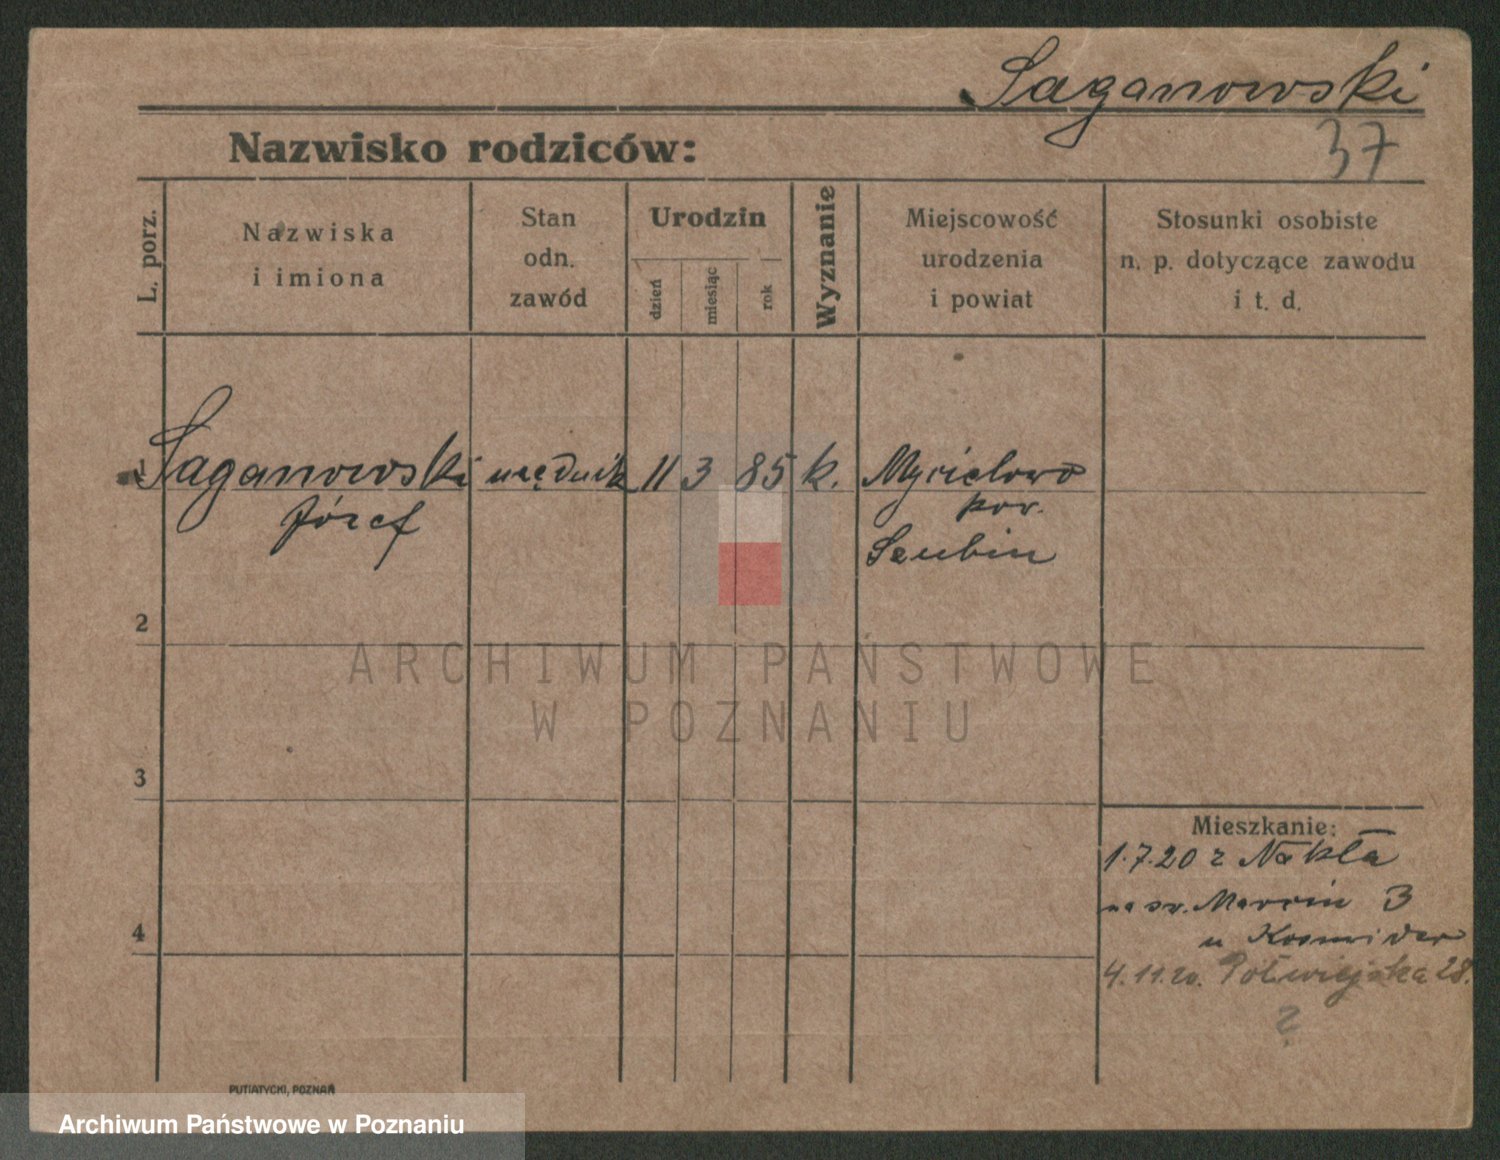 Saganowski
37
Nazwisko rodziców:
L. porz.
Nazwiska
i imiona
Stan
odn.
zawód
Urodzin
dzień
miesiąc
rok
Wyznanie
Miejscowość
urodzenia
i powiat
Stosunki osobiste
n. p. dotyczące zawodu
i t. d.
1 Saganowski urzędnik 11 3 85 k.
Józef
pow.
Szubin
2
ARCHIWUM PAŃSTWOWE
W POZNANIU
3
Mieszkanie:
1.7.20 z Nakła
na św. Marcin 3
4
u
4.11.20. Półwiejska 28.
?
PUTIATYCKI, POZNAŃ
Archiwum Państwowe w Poznaniu